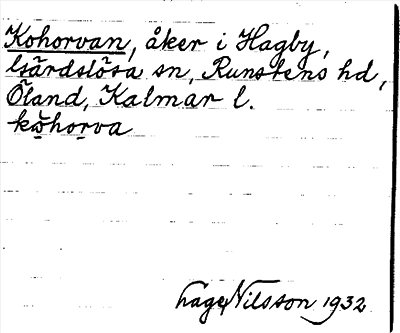 Kohorvan, åker i Hagby,
Gärdslösa sn, Runstens hd,
Öland, Kalmar l.
kohorva
Nilsson 1932